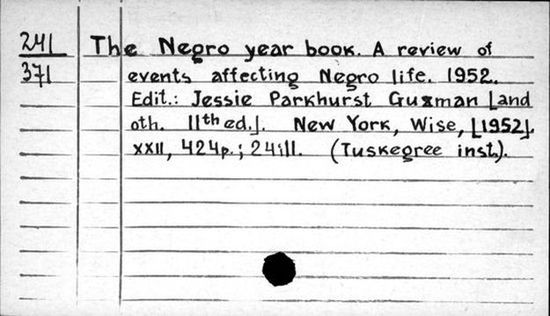 241 The Negro year book. A review of
371 events affecting Negro life. 1952.
Edit.: Jessie Parkhurst Guzman [and
oth. 11th ed.]. New York, Wise, [1952].
XXII, 424p.; 24ill. (Tuskegree inst.).